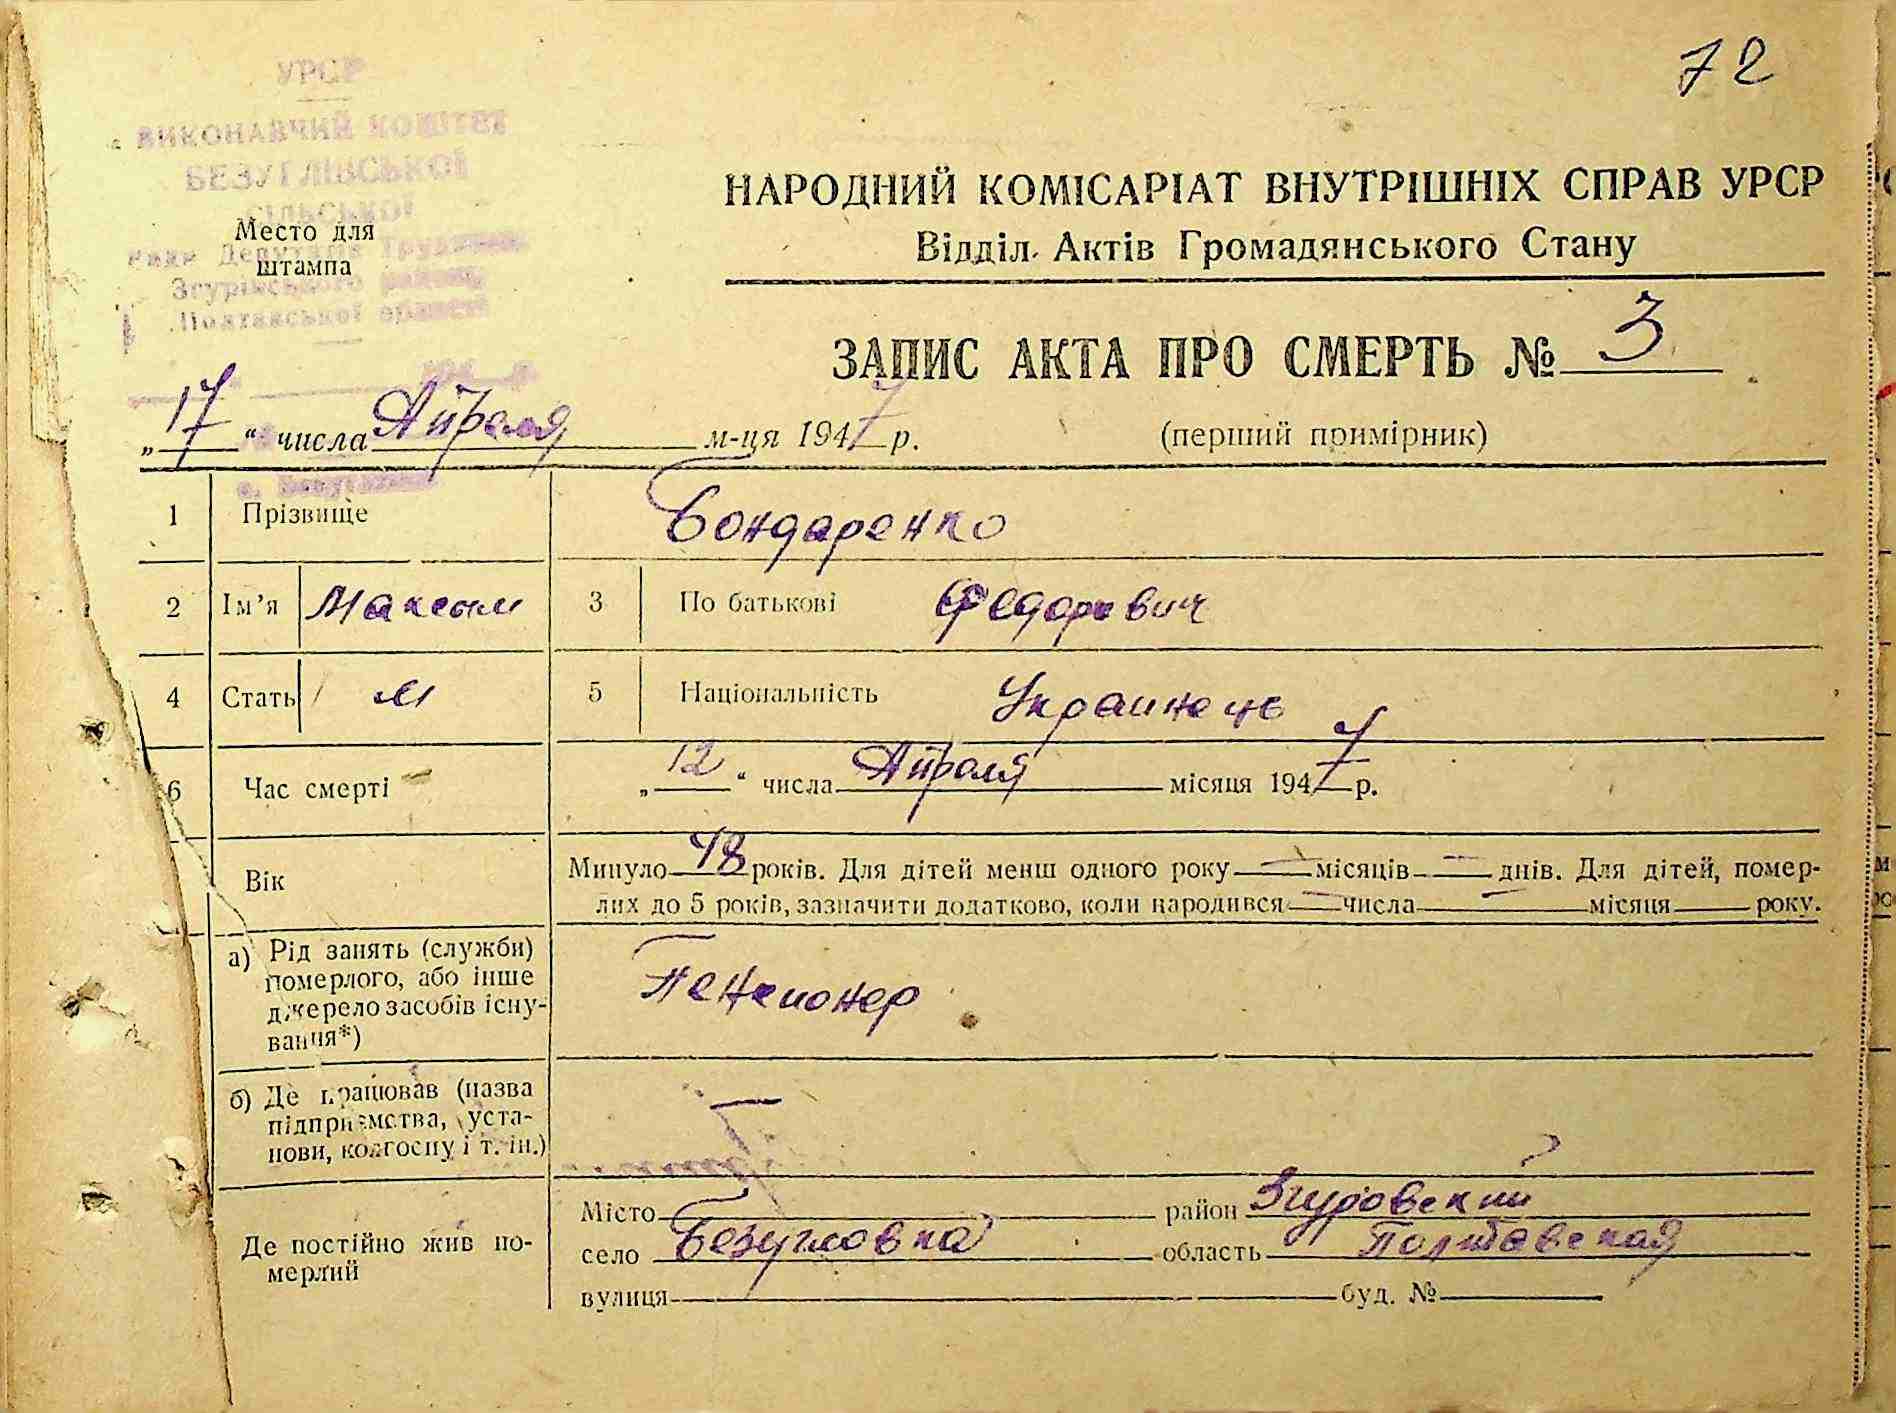 72
УРСР
ВИКОНАВЧИЙ КОМІТЕТ
БЕЗУГЛІВСЬКОЇ
СІЛЬСЬКОЇ
Ради Депутатів Трудящих
Згурівського району,
Полтавської області
Место для
штампа
НАРОДНИЙ КОМІСАРІАТ ВНУТРІШНІХ СПРАВ УРСР
Відділ Актів Громадянського Стану
ЗАПИС АКТА ПРО СМЕРТЬ № 3
„17“ числа Апреля м-ця 1947 р.
(перший примірник)
1 Прізвище Бондаренко
2 Ім'я Максым 3 По батькові Федорович
4 Стать м 5 Національність Украинець
6 Час смерті „12“ числа Апреля місяця 1947 р.
Вік Минуло 48 років. Для дітей менш одного року — місяців — днів. Для дітей, помер-
лих до 5 років, зазначити додатково, коли народився — числа — місяця року.
а) Рід занять (служби)
померлого, або інше
джерело засобів існу-
вання*)
Пенсионер
б) Де працював (назва
підприємства, уста-
нови, колгоспу і т. ін.)
Де постійно жив по-
мерлий
Місто район Згуровский
село Безугловка область Полтавская
вулиця буд. №